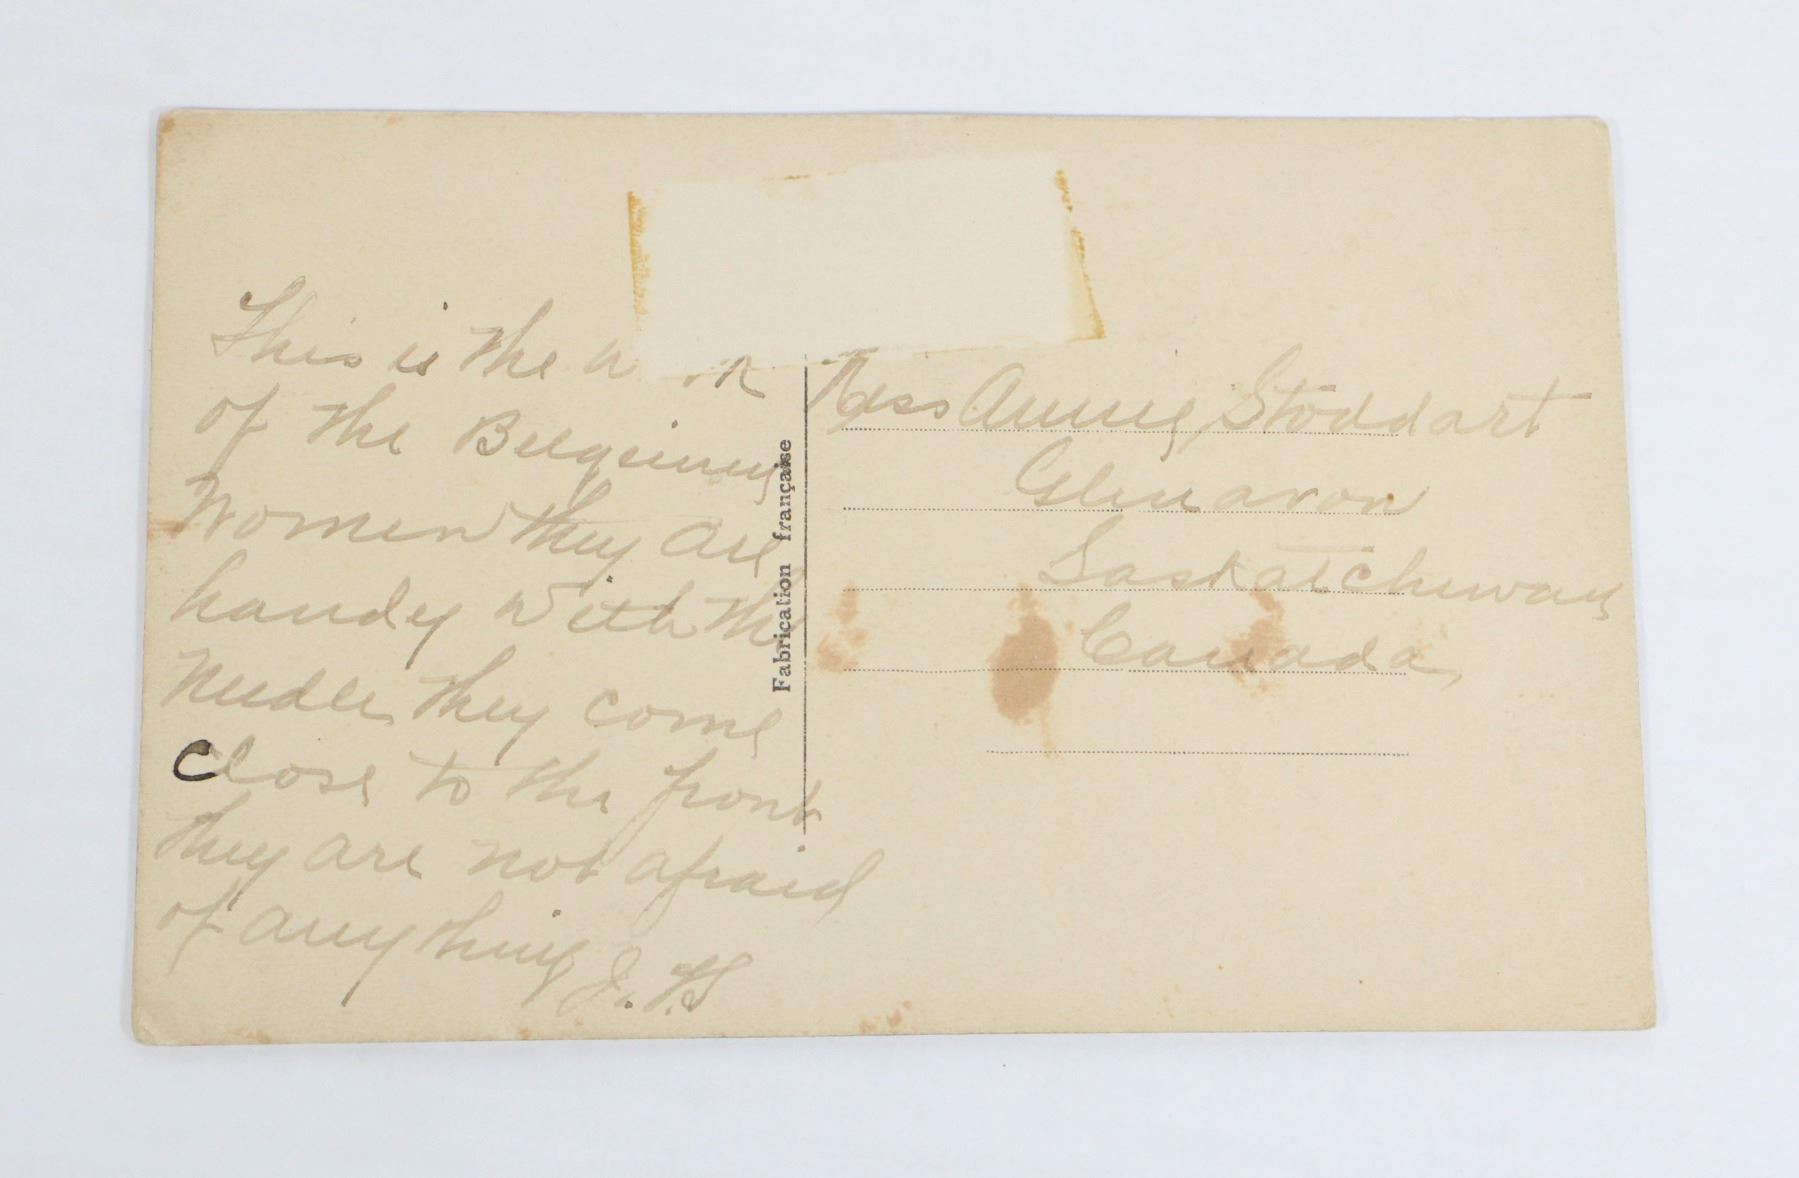 This is the
of the
Women they are
handy with the
Needle they come
close to the front
they are not afraid
of anything J. H S
Fabrication française
Miss Annie Stoddart
Glenavon
Saskatchewan
Canada